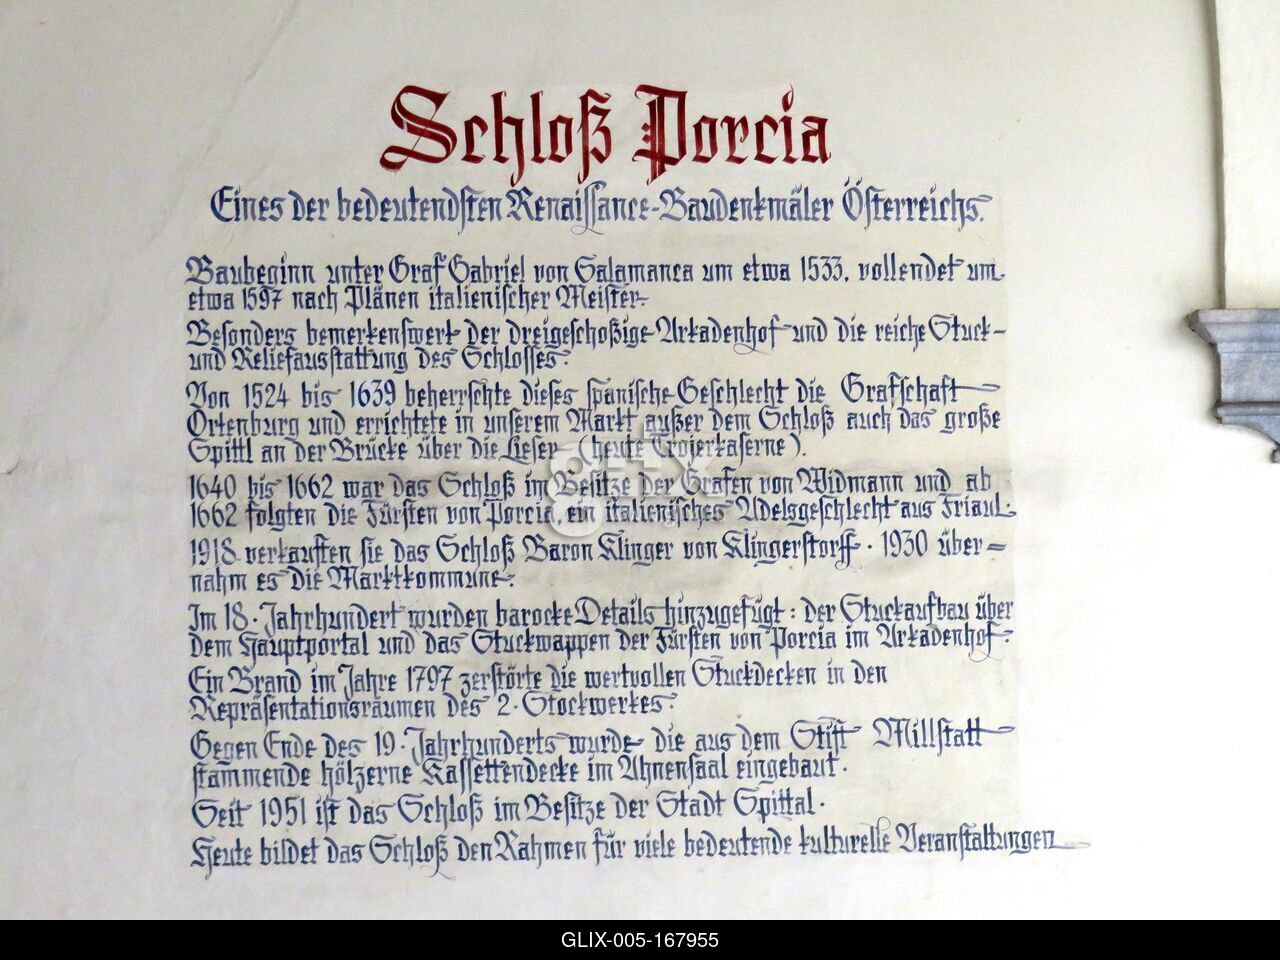 Schloß Porcia
Eines der bedeutendsten Renaissance-Baudenkmäler Österreichs.
Baubeginn unter Graf Gabriel von Salamanca um etwa 1533, vollendet um
etwa 1597 nach Plänen italienischer Meister.
Besonders bemerkenswert der dreigeschoßige Arkadenhof und die reiche Stuck-
und Reliefausstattung des Schlosses.
Von 1524 bis 1639 beherrschte dieses spanische Geschlecht die Grafschaft
Ortenburg und errichtete in unserem Markt außer dem Schloß auch das große
Spittl an der Brücke über die Lieser (heute Trojerkaserne).
1640 bis 1662 war das Schloß im Besitze der Grafen von Widmann und ab
1662 folgten die Fürsten von Porcia, ein italienisches Adelsgeschlecht aus Friaul.
1918 verkauften sie das Schloß Baron Klinger von Klingerstorff. 1930 über=
nahm es die Marktkommune.
Im 18. Jahrhundert wurden barocke Details hinzugefügt: der Stuckaufbau über
dem Hauptportal und das Stuckwappen der Fürsten von Porcia im Arkadenhof.
Ein Brand im Jahre 1797 zerstörte die wertvollen Stuckdecken in den
Repräsentationsräumen des 2. Stockwerkes.
Gegen Ende des 19. Jahrhunderts wurde die aus dem Stift Millstatt
stammende hölzerne Kassettendecke im Ahnensaal eingebaut.
Seit 1951 ist das Schloß im Besitze der Stadt Spittal.
Heute bildet das Schloß den Rahmen für viele bedeutende kulturelle Veranstaltungen
glix
GLIX-005-167955